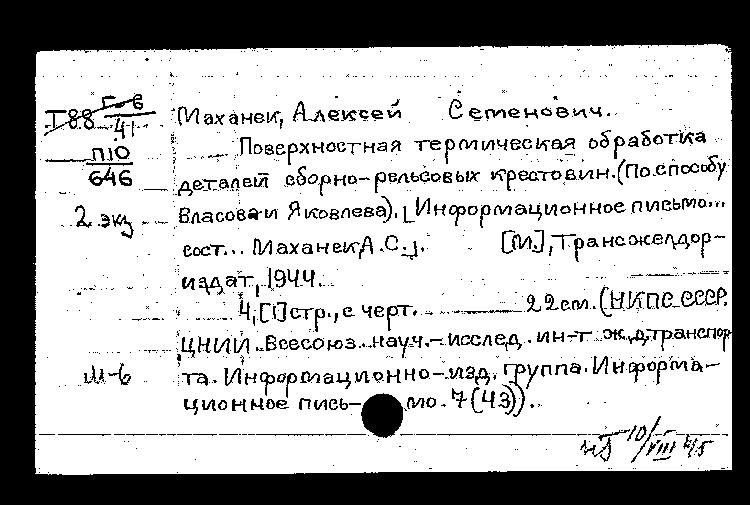 Т88 Г-6
41
П10
646
2 экз
М-6
Маханек, Алексей Семенович.
Поверхностная термическая обработка
деталей сборно-рельсовых крестовин. (По способу
Власова и Яковлева). [Информационное письмо...
сост... Маханек А.С.]. [М.], Трансжелдор-
издат, 1944.
4, [1] стр., с черт. 22 см. (НКПС СССР.
ЦНИИ. Всесоюз. науч.-исслед. ин-т ж.д. транспор
та. Информационно-изд. группа. Информа-
ционное пись- мо. 7(43)).
10/VIII 45